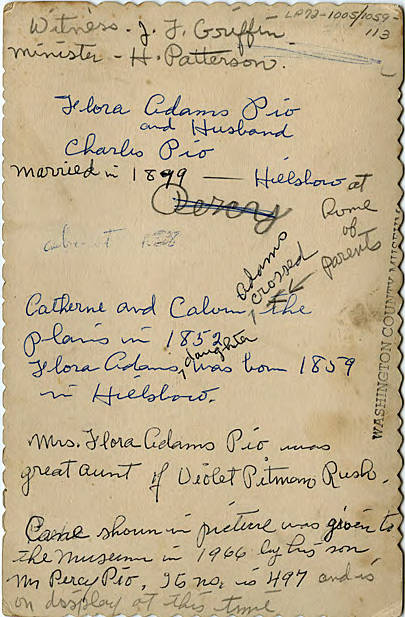 Witness - J. F. Griffin
LA72-1005/1059-
113
Minister - H. Patterson.
Flora Adams Pio
and Husband
Charles Pio
married in 1899 — Hillsboro at
Home
of
parents
about
Catherne and Calvin Adams crossed the
plains in 1852
Flora Adams, daughter was born 1859
in Hillsboro.
Mrs. Flora Adams Pio was
great aunt of Violet Pitman Rush.
Cane shown in picture was given to
the Museum in 1966 by his son
Mr Perci Pio. Its no. is 497 and is
on display at this time
WASHINGTON COUNTY MUSEUM